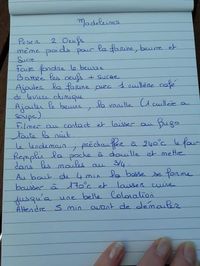 Madeleines
Peser 2 Oeufs
même poids pour la farine, beurre et
Sucre
Faire fondre le beurre
Battre les oeufs + sucre
Ajouter la farine avec 1 cuillère café
de levure chimique
Ajouter le beurre, la vanille (1 cuillère a
soupe)
Filmer au contact et laisser au frigo
toute la nuit
Le lendemain, préchauffer à 240°c le four
Remplir la poche à douille et mettre
dans les moules au 3/4
Au bout de 4 min la bosse se forme
baisser à 170°c et laisser cuire
jusqu'a une belle Coloration
Attendre 5 min avant de démouler